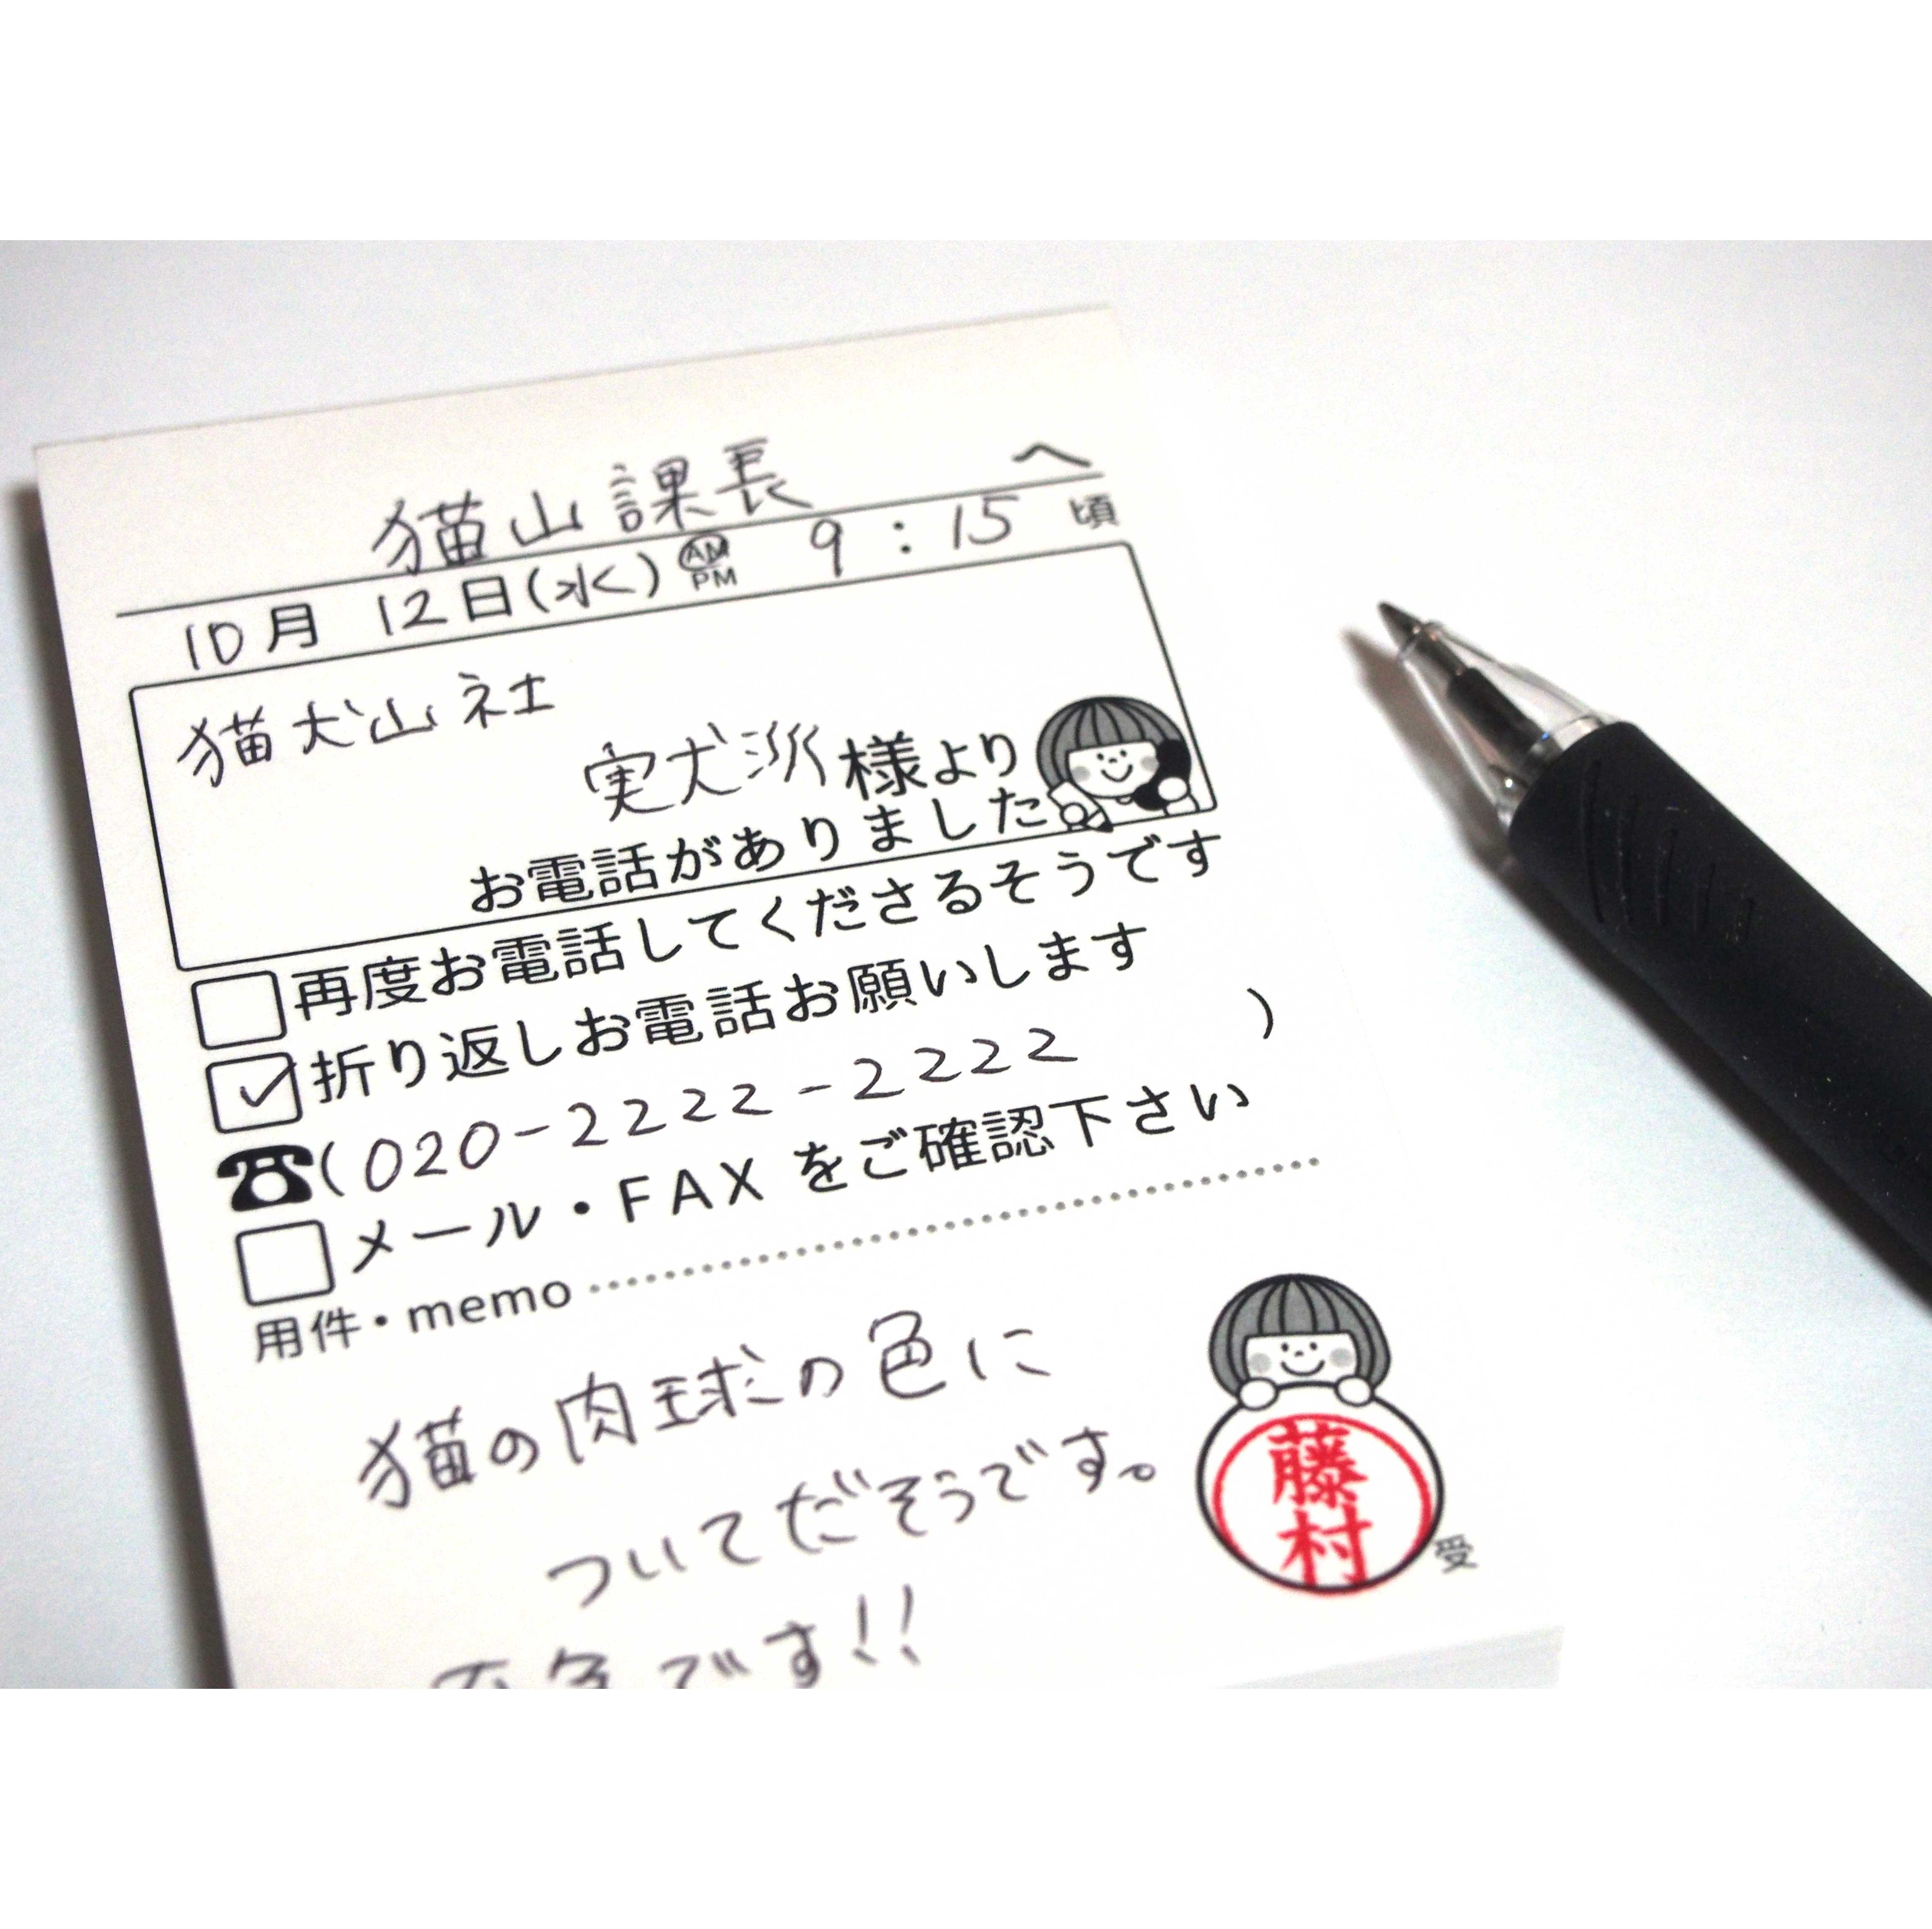 猫山課長 へ
10月 12日(水) AM PM 9:15 頃
猫犬山社
実犬派様より
お電話がありました
再度お電話してくださるそうです
折り返しお電話お願いします
(020-2222-2222 )
メール・FAX をご確認下さい
用件・memo
猫の肉球の色に
ついてだそうです。
です!!
藤村
受